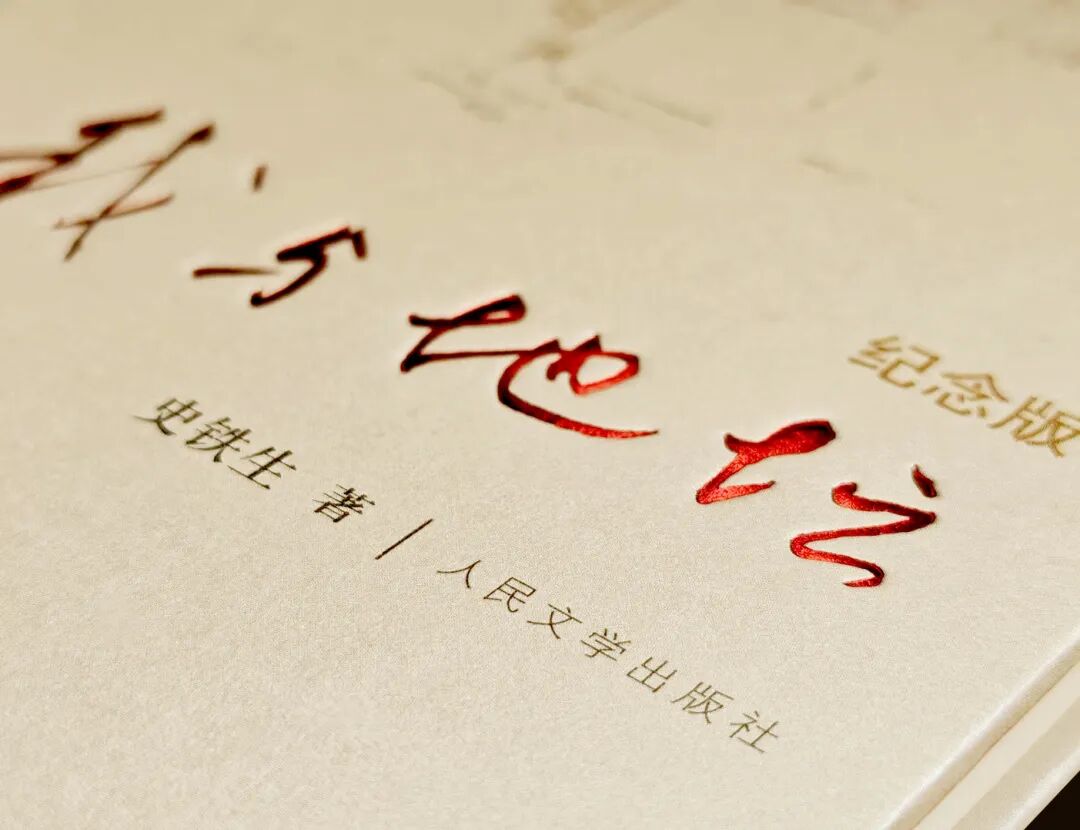 我与地坛
纪念版
史铁生 著 | 人民文学出版社